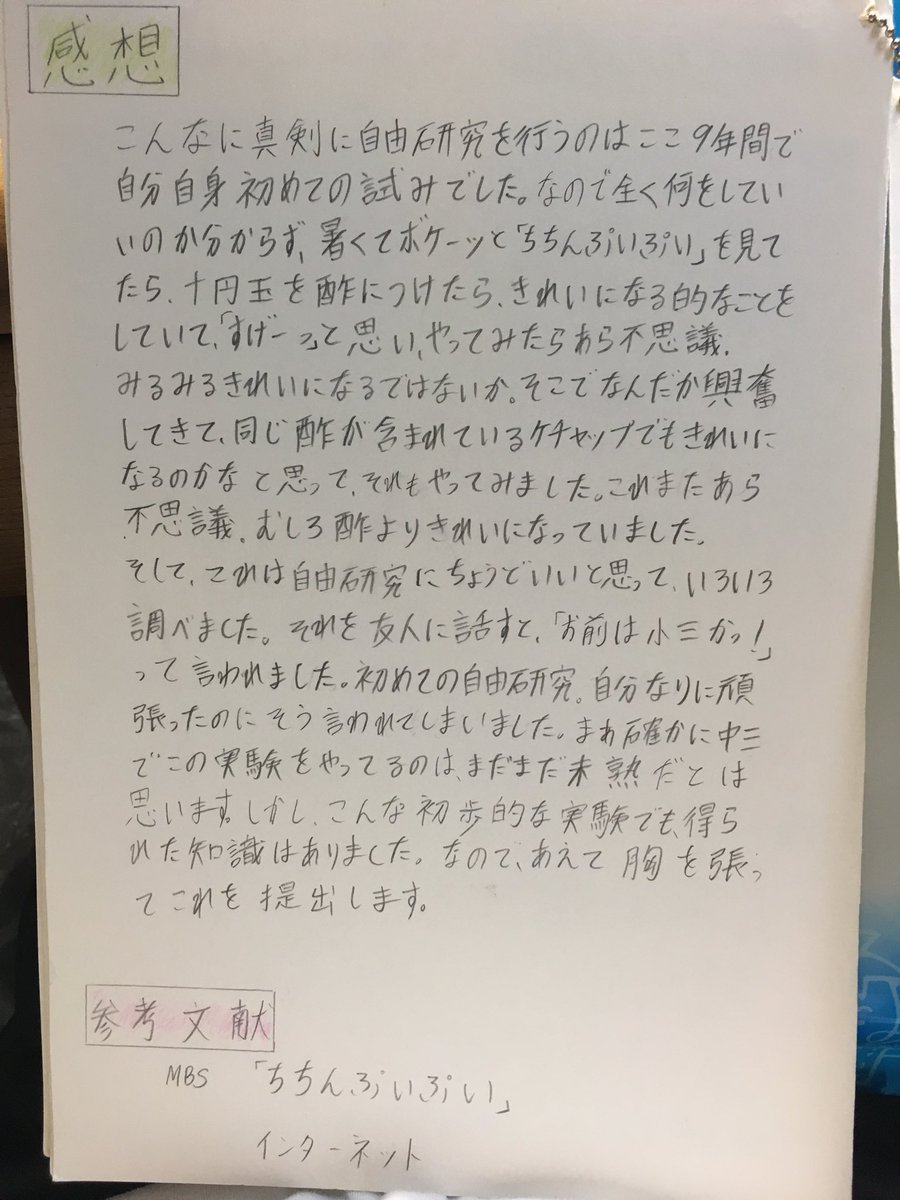 感想
こんなに真剣に自由研究を行うのはここ9年間で
自分自身初めての試みでした。なので全く何をしてい
いのか分からず、暑くてボケーッと「ちちんぷいぷい」を見て
たら、十円玉を酢につけたら、きれいになる的なことを
していて、「すげーっ」と思い、やってみたらあら不思議、
みるみるきれいになるではないか。そこでなんだか興奮
してきて、同じ酢が含まれているケチャップでもきれいに
なるのかなと思って、それもやってみました。これまたあら
不思議、むしろ酢よりきれいになっていました。
そして、これは自由研究にちょうどいいと思って、いろいろ
調べました。それを友人に話すと、「お前は小三かっ!」
って言われました。初めての自由研究。自分なりに頑
張ったのにそう言われてしまいました。まぁ確かに中三
でこの実験をやってるのは、まだまだ未熟だとは
思います。しかし、こんな初歩的な実験でも、得ら
れた知識はありました。なので、あえて胸を張っ
てこれを提出します。
参考文献
MBS 「ちちんぷいぷい」
インターネット